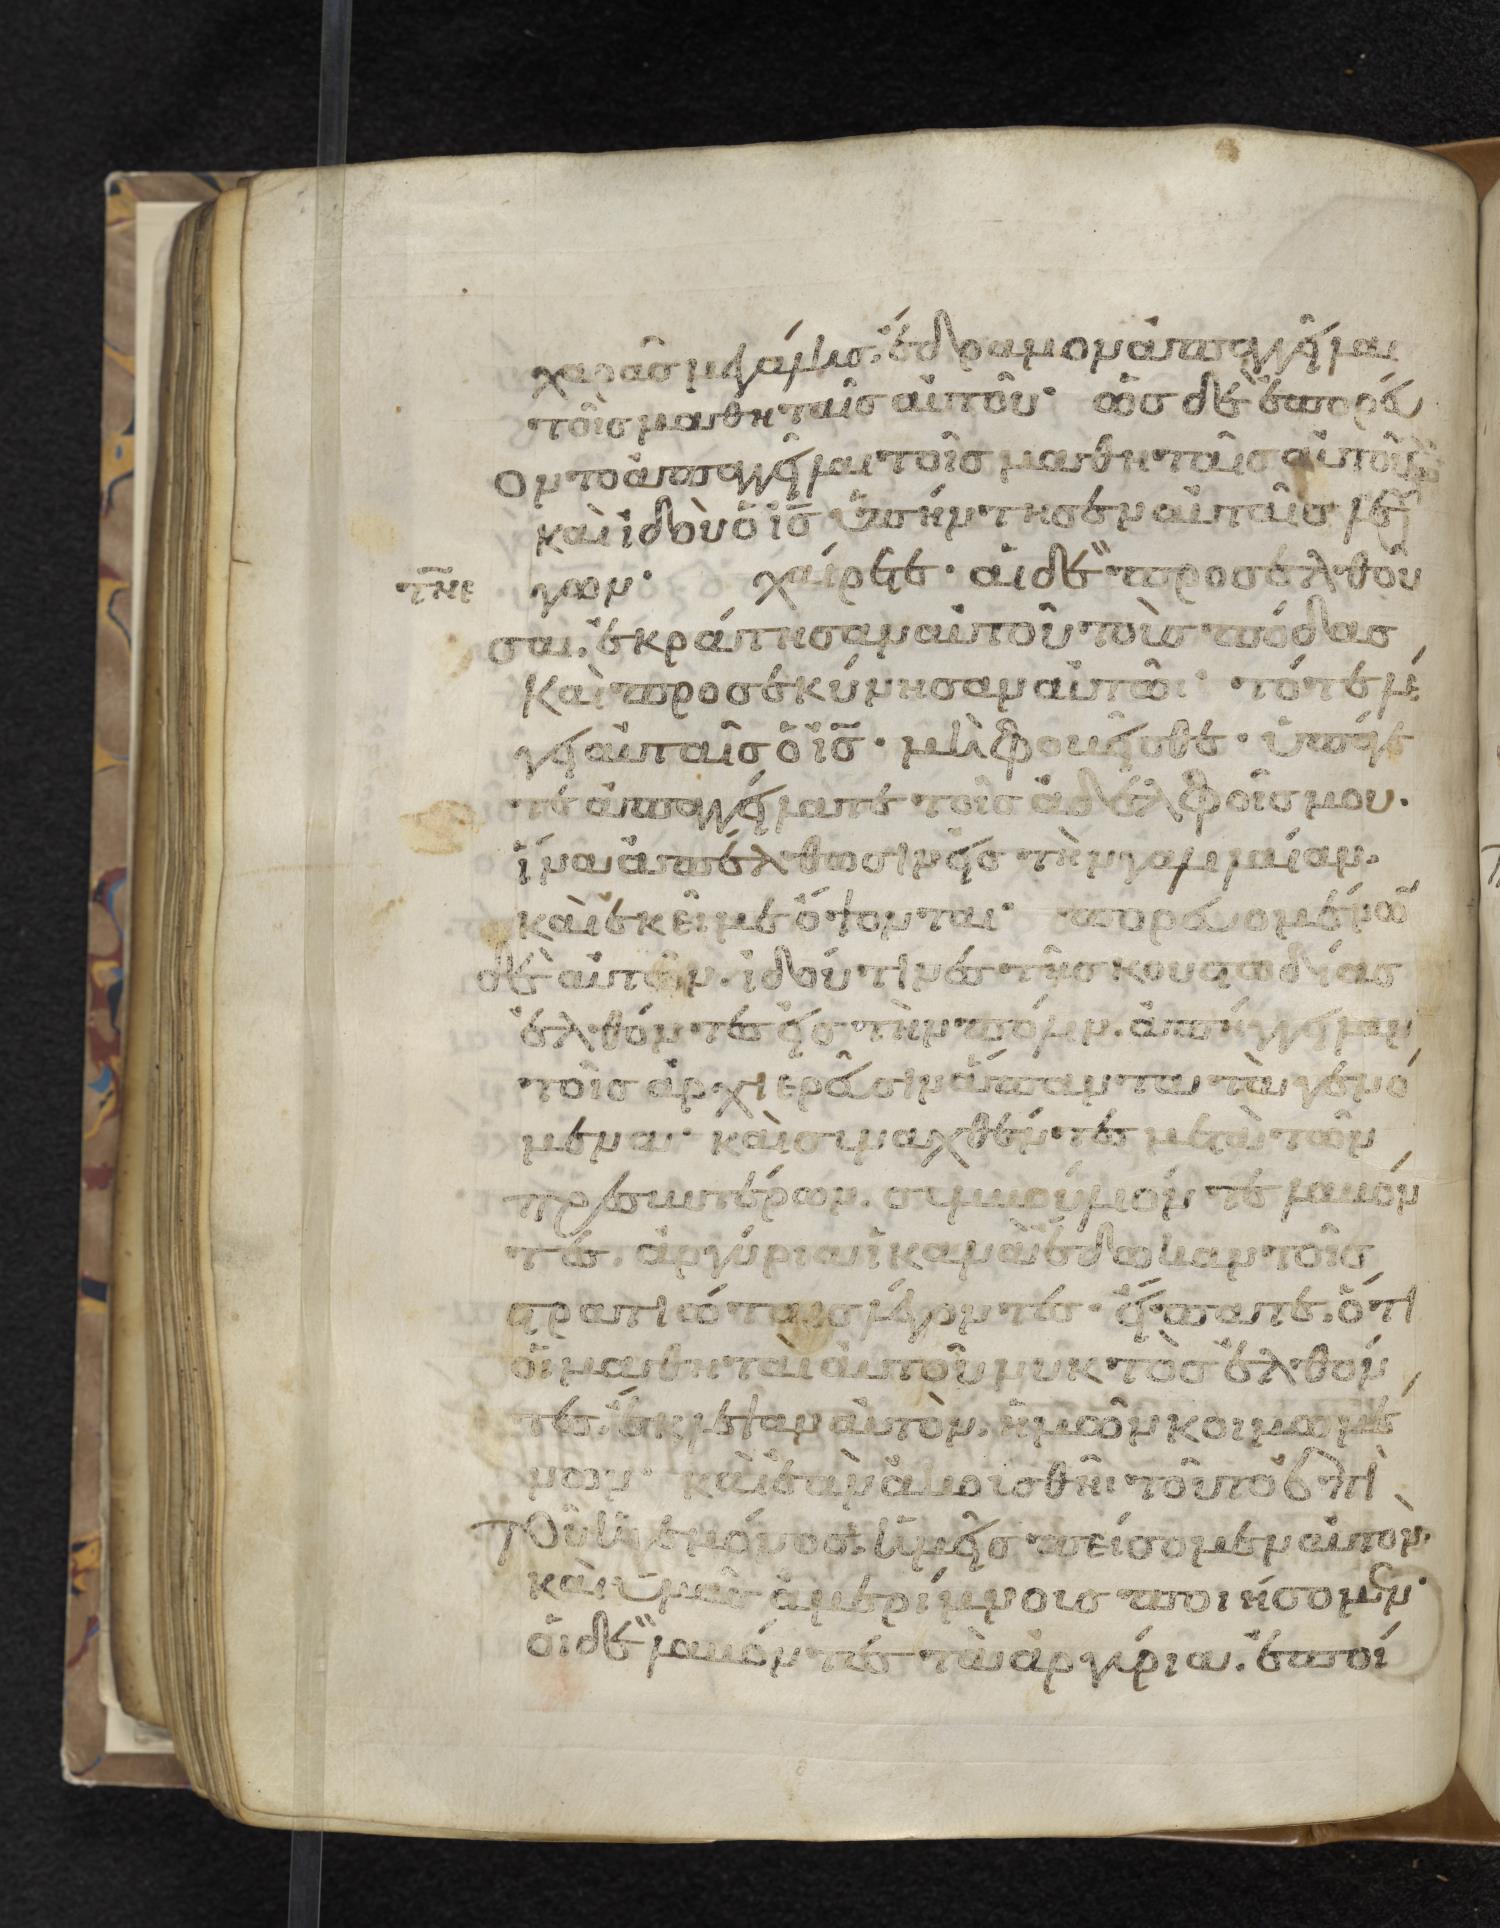 χαρᾶς μεγάλης. ἔδραμον ἀπαγγεῖλαι
τοῖς μαθηταῖς αὐτοῦ· ὡς δὲ ἐπορεύ
οντο ἀπαγγεῖλαι τοῖς μαθηταῖς αὐτοῦ
καὶ ἰδοὺ ὁ ἰ̅ς̅ ὑπήντησεν αὐταῖς λέ
τνε γων· χαίρετε· αἱ δὲ προσελθοῦ
σαι. ἐκράτησαν αὐτοῦ τοὺς πόδας
καὶ προσεκύνησαν αὐτῶι· τότε λέ
γει αὐταῖς ὁ ἰ̅ς̅· μὴ φοβεῖσθε· ὑπάγε
τε ἀπαγγείλατε τοῖς ἀδελφοῖς μου·
ἵνα ἀπέλθωσιν εἰς τὴν γαλιλαίαν.
καὶ ἐκεῖ με ὄψονται· πορευομένω
δὲ αὐτῶν. ἰδού τινες τῆς κουστωδίας
ἐλθόντες εἰς τὴν πόλιν. ἀπήγγειλαν
τοῖς ἀρχιερεῦσιν ἅπαντα τὰ γενό
μενα· καὶ συναχθέντες μετὰ τῶν
πρεσβυτέρων. συμβούλιόν τε λαβόν
τες. ἀργύρια ἱκανὰ ἔδωκαν τοῖς
στρατιώταις λέγοντες· εἴπατε. ὅτι
οἱ μαθηταὶ αὐτοῦ νυκτὸς ἐλθόν
τες. ἔκλεψαν αὐτὸν. ἡμῶν κοιμωμέ
νων· καὶ ἐὰν ἀκουσθῆι τοῦτο ἐπὶ
τοῦ ἡγεμόνος. ἡμεῖς πείσομεν αὐτὸν.
καὶ ὑμᾶς ἀμερίμνους ποιήσομεν·
οἱ δὲ λαβόντες τὰ ἀργύρια. ἐποί